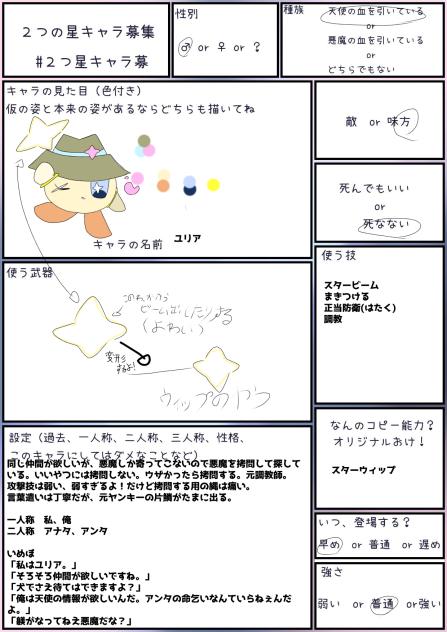 ２つの星キャラ募集
#２つ星キャラ募
性別
♂ or ♀ or ?
種族
天使の血を引いている
or
悪魔の血を引いている
or
どちらでもない
キャラの見た目（色付き）
仮の姿と本来の姿があるならどちらも描いてね
キャラの名前
ユリア
敵 or 味方
死んでもいい
or
死なない
使う武器
ビーム出したりする
(よわい)
変形
するよ!
ウィップのやつ
使う技
スタービーム
まきつける
正当防衛(はたく)
調教
なんのコピー能力？
オリジナルおけ！
スターウィップ
設定（過去、一人称、二人称、三人称、性格、
このキャラにしてはダメなことなど）
同じ仲間が欲しいが、悪魔しか寄ってこないので悪魔を拷問して探して
いる。いいやつには拷問しない。ウザかったら拷問する。元調教師。
攻撃技は弱い、弱すぎるよ！だけど拷問する用の縄は痛い。
言葉遣いは丁寧だが、元ヤンキーの片鱗がたまに出る。
一人称　私、俺
二人称　アナタ、アンタ
いめぼ
「私はユリア。」
「そろそろ仲間が欲しいですね。」
「犬でさえ待てはできますよ？」
「俺は天使の情報が欲しいんだ。アンタの命乞いなんていらねぇんだ
よ。」
「躾がなってねえ悪魔だな？」
いつ、登場する？
早め or 普通 or 遅め
強さ
弱い or 普通 or 強い